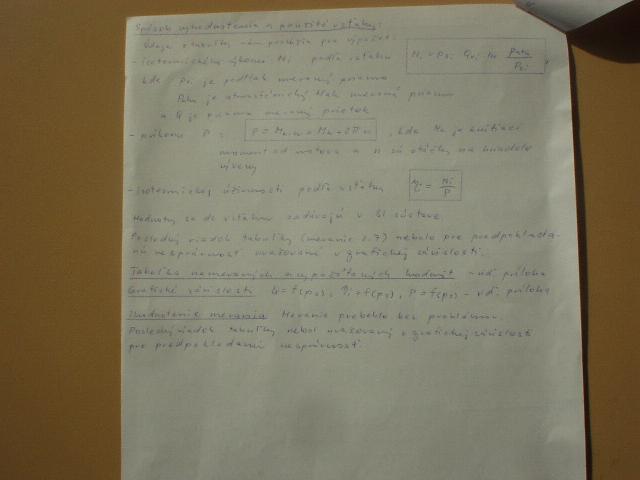 Spôsob vyhodnotenia a použité vzťahy:
Údaje z tabuľky nám poslúžia pre výpočet:
- izotermického výkonu Ni podľa vzťahu Ni = psi . Qsi . ln patm / psi ,
kde psi je podtlak meraný priamo
patm je atmosférický tlak meraný priamo
a Q je priamo meraný prietok
- príkonu P : P = Mk . ω = Mk . 2 π n , kde Mk je krútiaci
moment od motora a n sú otáčky na hriadeli
vývevy
- izotermickej účinnosti podľa vzťahu ηi = Ni / P
Hodnoty sa do vzťahov zadávajú v SI sústave.
Posledný riadok tabuľky (meranie č.7) nebolo pre predpokladanú
nesprávnosť uvažované v grafickej závislosti.
Tabuľka nameraných a vypočítaných hodnôt - viď. príloha
Grafické závislosti Q = f(ps), ηi = f(ps), P = f(ps) - viď. príloha
Zhodnotenie merania Meranie prebehlo bez problémov.
Posledný riadok tabuľky nebol uvažovaný v grafickej závislosti
pre predpokladanú nesprávnosť.